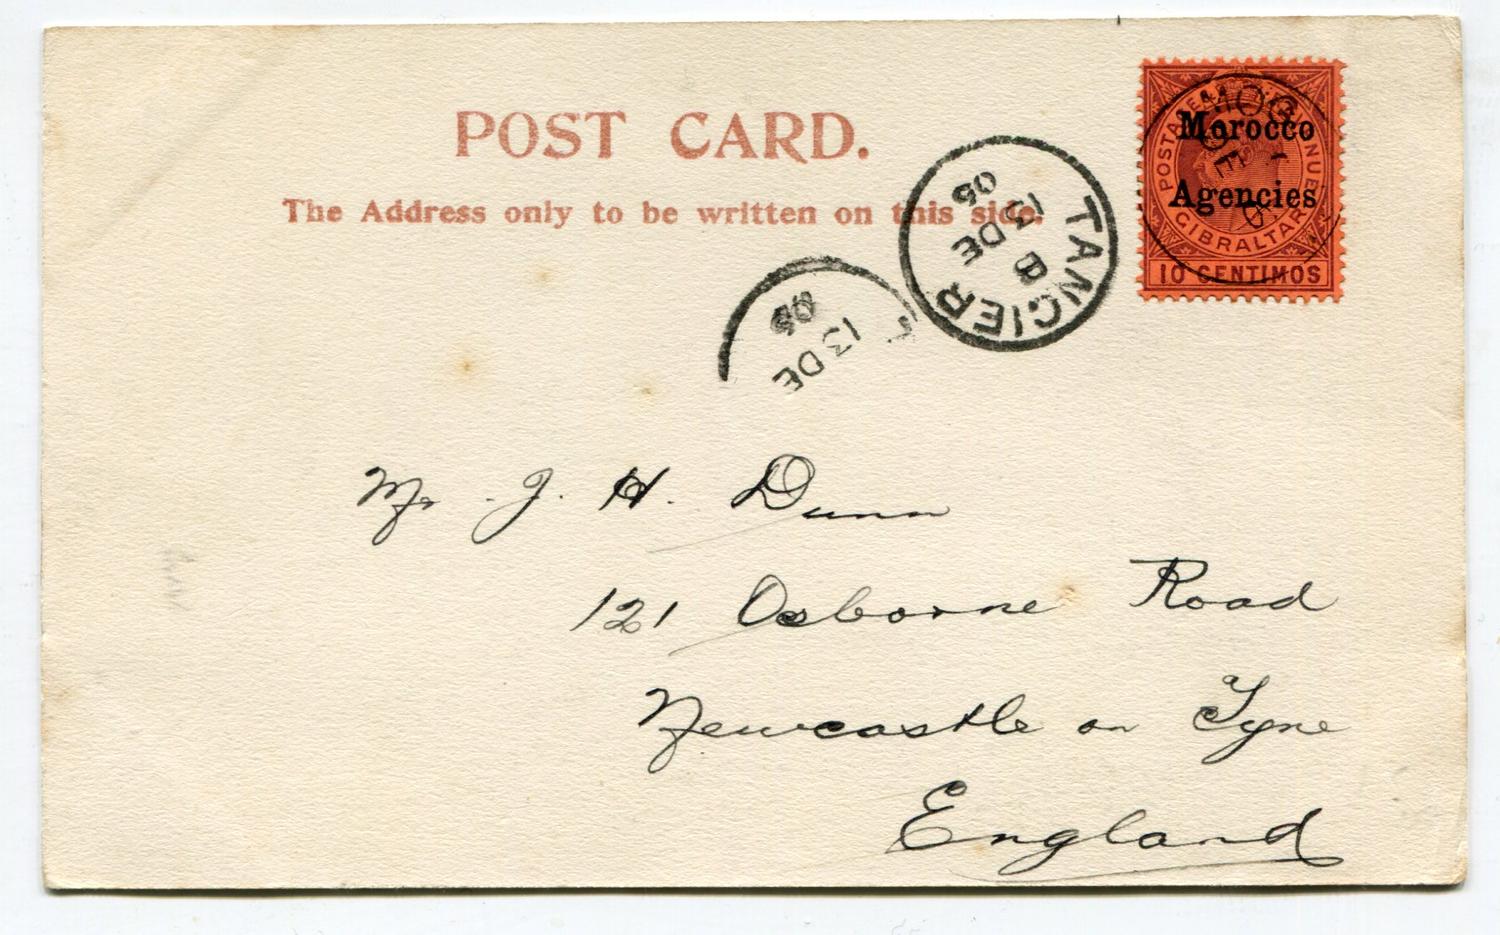 POST CARD.
The Address only to be written on this side.
Morocco
Agencies
POSTAGE
REVENUE
GIBRALTAR
10 CENTIMOS
MOG
DE
TANGIER
B
13 DE
05
13 DE
05
Mr. J. H. Dunn
121 Osborne Road
Newcastle on Tyne
England